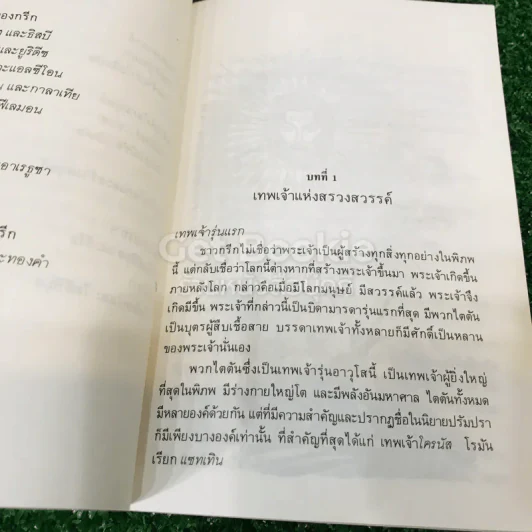 องกรีก
และธิสบี
และยูริดิซ
ะแอลซีโอน
และกาลาเทีย
ฟีเลมอน
อาเรธูซา
รีก
ะทองคำ
บทที่ 1
เทพเจ้าแห่งสรวงสวรรค์
เทพเจ้ารุ่นแรก
ชาวกรีกไม่เชื่อว่าพระเจ้าเป็นผู้สร้างทุกสิ่งทุกอย่างในพิภพ
นี้ แต่กลับเชื่อว่าโลกนี้ต่างหากที่สร้างพระเจ้าขึ้นมา พระเจ้าเกิดขึ้น
ภายหลังโลก กล่าวคือเมื่อมีโลกมนุษย์ มีสวรรค์แล้ว พระเจ้าจึง
เกิดมีขึ้น พระเจ้าที่กล่าวนี้เป็นบิดามารดารุ่นแรกที่สุด มีพวกไตตัน
เป็นบุตรผู้สืบเชื้อสาย บรรดาเทพเจ้าทั้งหลายก็มีศักดิ์เป็นหลาน
ของพระเจ้านั่นเอง
พวกไตตันซึ่งเป็นเทพเจ้ารุ่นอาวุโสนี้ เป็นเทพเจ้าผู้ยิ่งใหญ่
ที่สุดในพิภพ มีร่างกายใหญ่โต และมีพลังอันมหาศาล ไตตันทั้งหมด
มีหลายองค์ด้วยกัน แต่ที่มีความสำคัญและปรากฏชื่อในนิยายปรัมปรา
ก็มีเพียงบางองค์เท่านั้น ที่สำคัญที่สุดได้แก่ เทพเจ้าโครนัส โรมัน
เรียก แซทเทิน